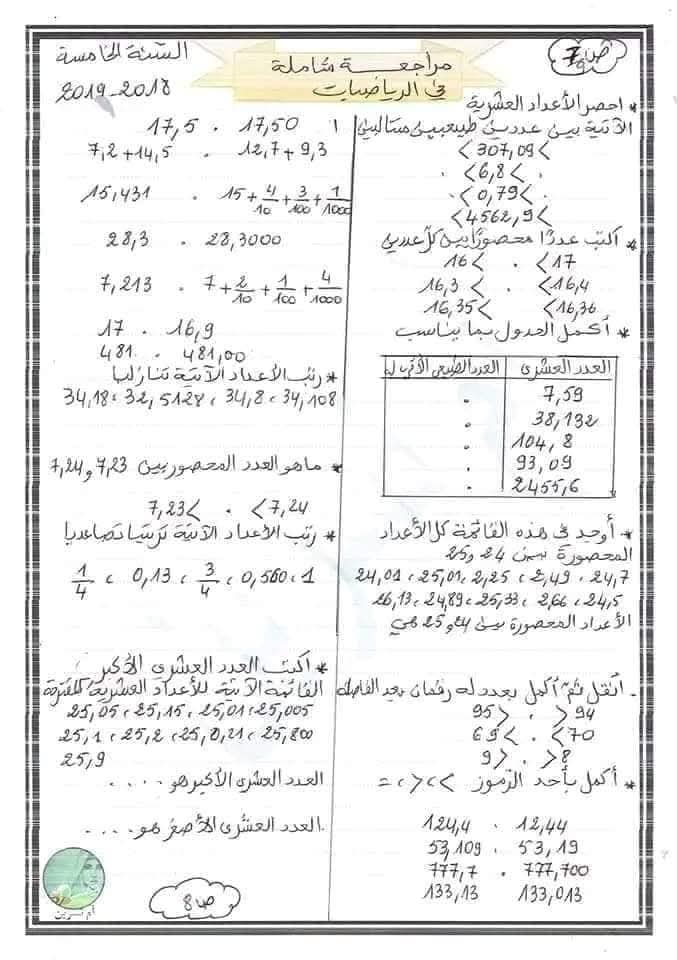 السنة الخامسة
2018-2019
مراجعة شاملة
في الرياضيات
ص 7
* احصر الأعداد العشرية
الآتية بين عددين طبيعيين متتاليين
<307,09<
. <6,8< .
. <0,79< .
<4562,9<
* اكتب عددًا محصورًا بين كل عددين
16< . <17
16,3 < . <16,4
16,35< <16,36
* أكمل الجدول بما يناسب
العدد العشري | العدد الطبيعي الأقرب له
7,59 | .
38,132 | .
104,8 | .
93,09 | .
2455,6 | .
* أوجد في هذه القائمة كل الأعداد
المحصورة بين 24 و 25
24,7 ، 2,49 ، 2,25 ، 25,01 ، 24,01
24,5 ، 2,66 ، 25,33 ، 24,89 ، 26,13
الأعداد المحصورة بين 24 و 25 هي
- أنقل ثم أكمل بعدد له رقمان بعد الفاصلة
95> . >94
69< . <70
9> . >8
* أكمل بأحد الرموز > ، < ، =
124,4 . 12,44
53,109 . 53,19
777,7 . 777,700
133,13 133,013
17,5 . 17,50
7,2+14,5 . 12,7+9,3
15,431 . 15+4/10+3/100+1/1000
28,3 . 28,3000
7,213 . 7+2/10+1/100+4/1000
17 . 16,9
481 . 481,00
* رتب الأعداد الآتية تنازليا
34,108 ، 34,8 ، 32,5128 ، 34,18
* ما هو العدد المحصور بين 7,23 و 7,24
7,23< . <7,24
* رتب الأعداد الآتية ترتيبا تصاعديا
1/4 ، 0,13 ، 3/4 ، 0,560 ، 1
* اكتب العدد العشري الأكبر
القائمة الآتية للأعداد العشرية المقترحة
25,005 ، 25,01 ، 25,15 ، 25,05
25,800 ، 25,0,21 ، 25,2 ، 25,1
25,9
العدد العشري الأكبر هو . . . .
العدد العشري الأصغر هو . . . .
ص 8
أم نسرين